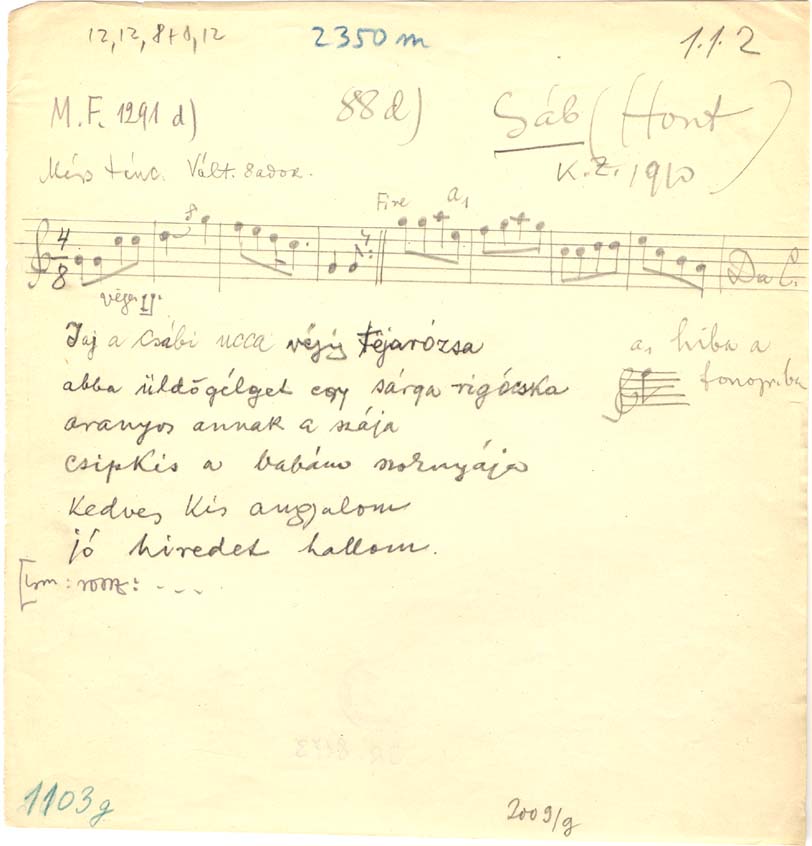 12, 12, 8+8, 12
2350 m
1.1.2
M.F. 1291 d)
88 d)
Sáb (Hont)
K.Z. 1910
tánc. Vált.
Fine
a₁
4
8
8
Da C.
vége II.
Jaj a csábi ucca végig féjarózsa
abba üldögélget egy sárga rigócska
aranyos annak a szája
csipkis a babám szoknyája
kedves kis angyalom
jó hiredet hallom.
a₁ hiba a
[Ism: rossz: - - -
1103 g
2009/g